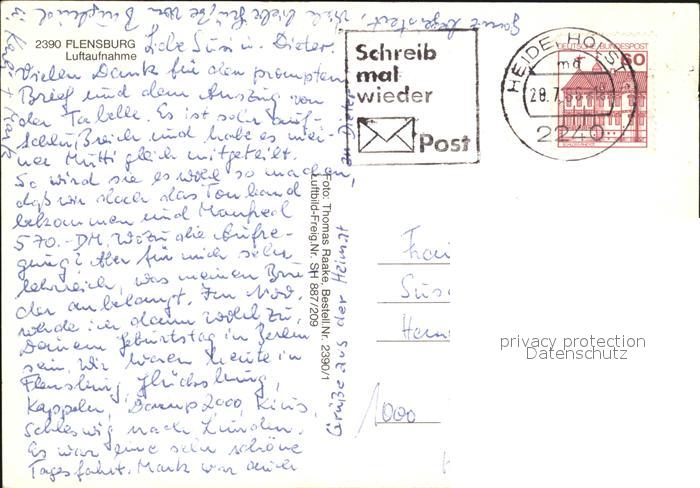 2390 FLENSBURG
Luftaufnahme
Liebe Susi u. Dieter.
Vielen Dank für den prompten
Brief und dem Auszug von
der Tabelle. Es ist sehr auf-
schlußreich und habe es mei-
ner Mutti gleich mitgeteilt.
So wird sie es wohl so machen,
daß wir doch das Tonband
bekommen und Manfred
570.-DM. Wozu die Aufre-
gung? Aber für mich sehr
lehrreich, was meinen Bru-
der anbelangt. Im Nov.
werde ich dann wohl zu
Deinem Geburtstag in Berlin
sein. Wir waren heute in
Flensburg, Glücksburg,
Kappeln, Damp2000,
Schleswig nach Lunden.
Es war eine sehr schöne
Tagesfahrt. Mark war auch
viele liebe Grüße von
Grüße aus der Heimat
Foto: Thomas Raake, Bestell.Nr. 2390/1
Luftbild-Freig.Nr. SH 887/209
Schreib
mal
wieder
Post
HEIDE, HOLST
md
2240
DEUTSCHE BUNDESPOST
60
1000
privacy protection
Datenschutz